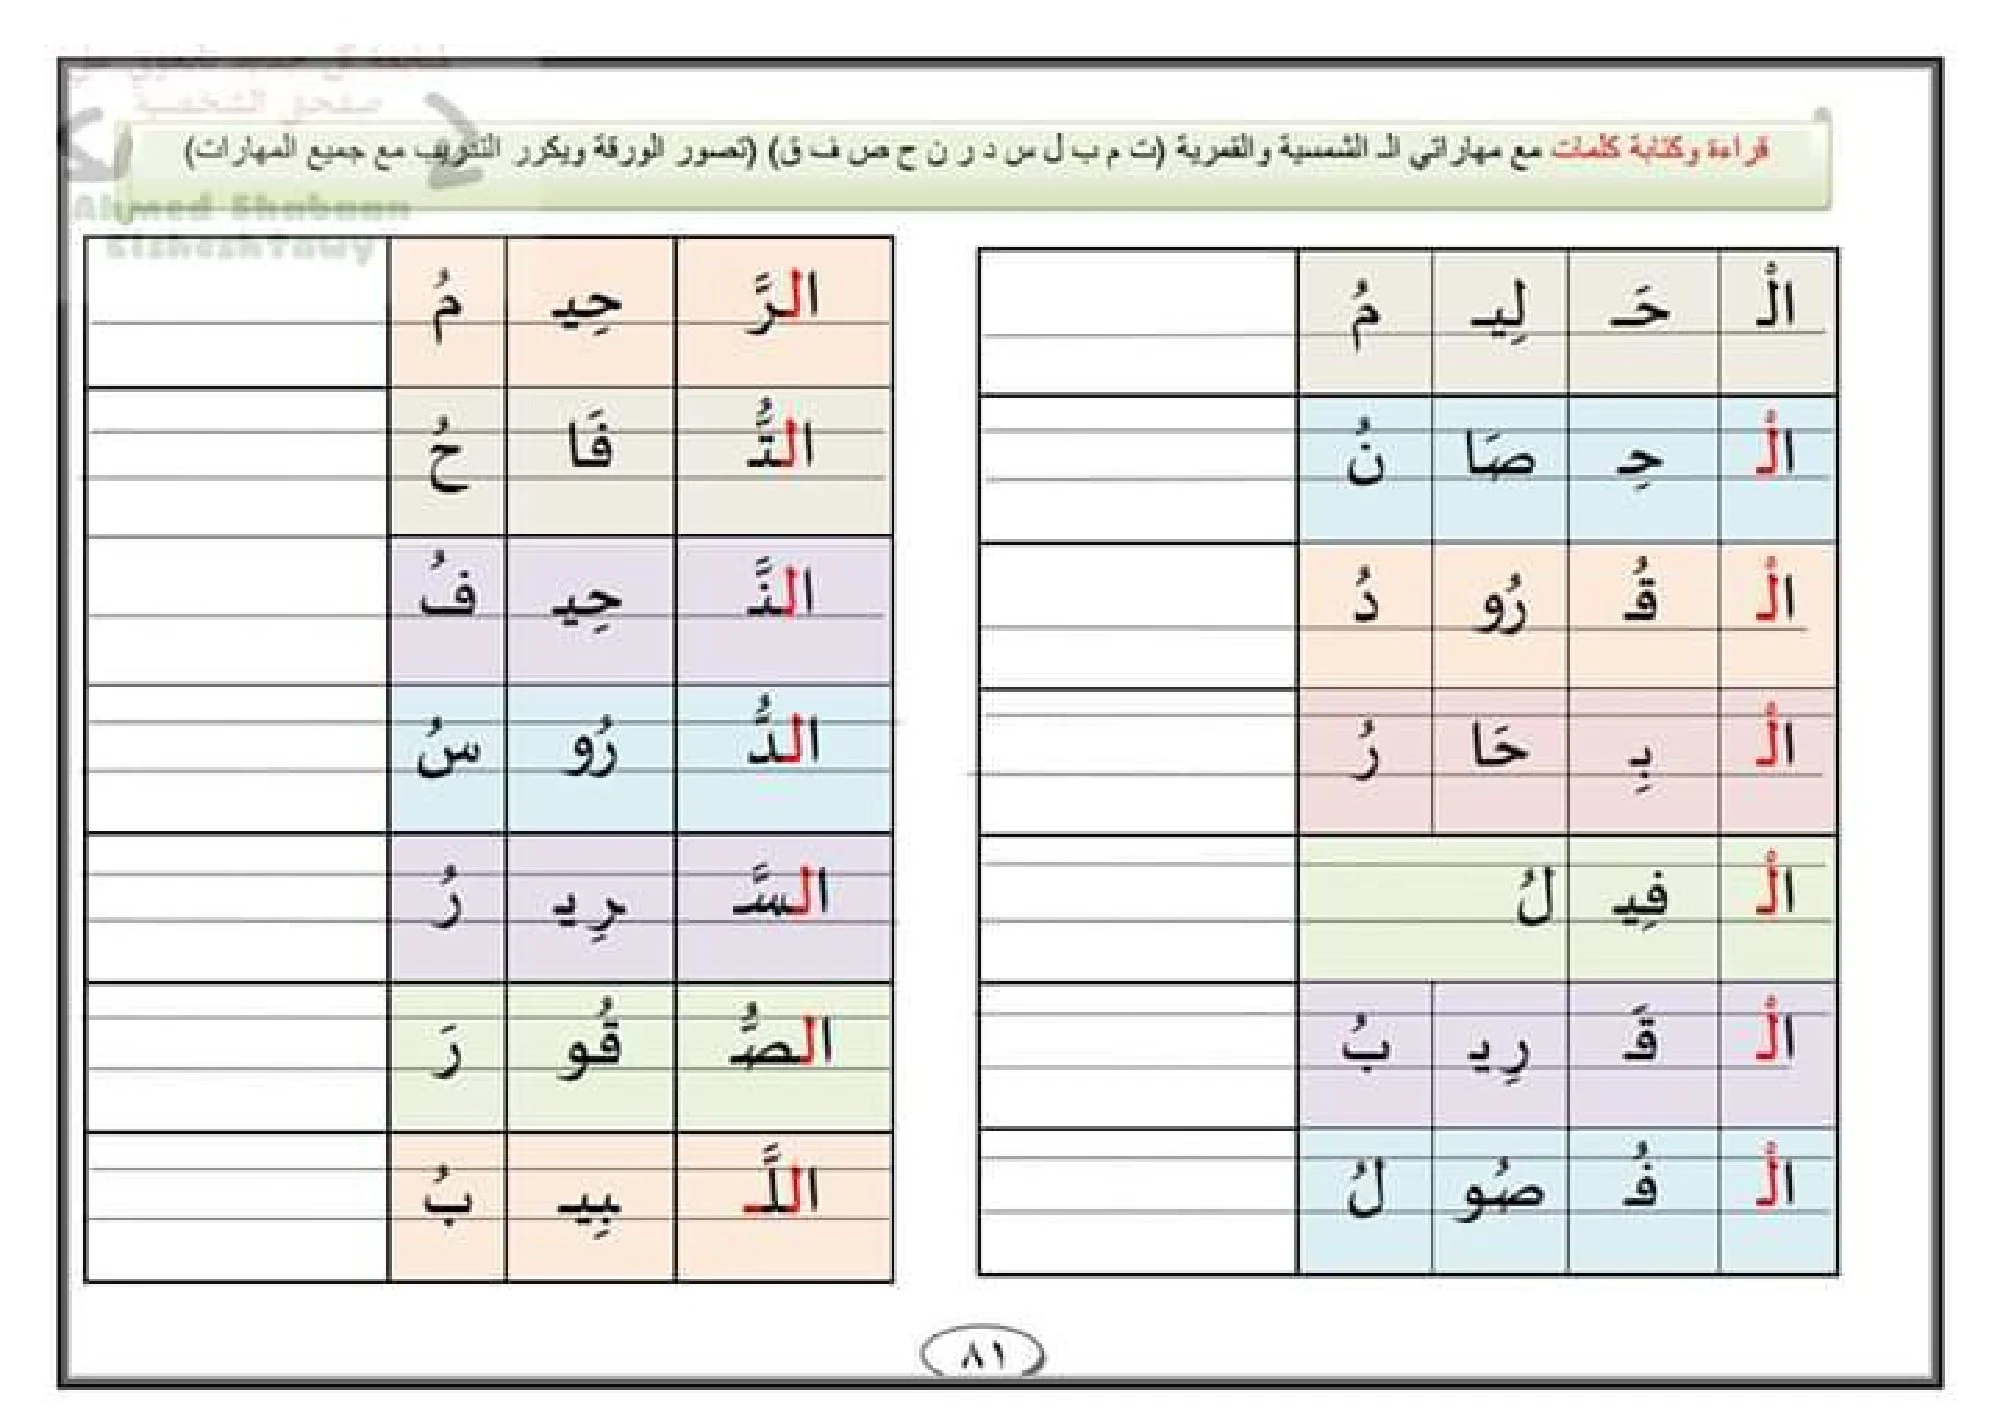 صفحتي الشخصية
Ahmed Shabaan
Elsheshtawy
قراءة وكتابة كلمات مع مهاراتي الـ الشمسية والقمرية (ت م ب ل س د ر ن ح ص ف ق) (تصور الورقة ويكرر التدريب مع جميع المهارات)
الْـ حَـ لِيـ مُ
الْـ حِـ صَا نُ
الْـ قُـ رُو دُ
الْـ بِـ حَا رُ
الْـ فِيـ لُ
الْـ قَـ رِيـ بُ
الْـ فُـ صُو لُ
الرَّ حِيـ مُ
التُّـ فَا حُ
النَّـ حِيـ فُ
الدُّ رُو سُ
السَّـ رِيـ رُ
الصُّـ قُو رَ
اللَّـ بِيـ بُ
٨١